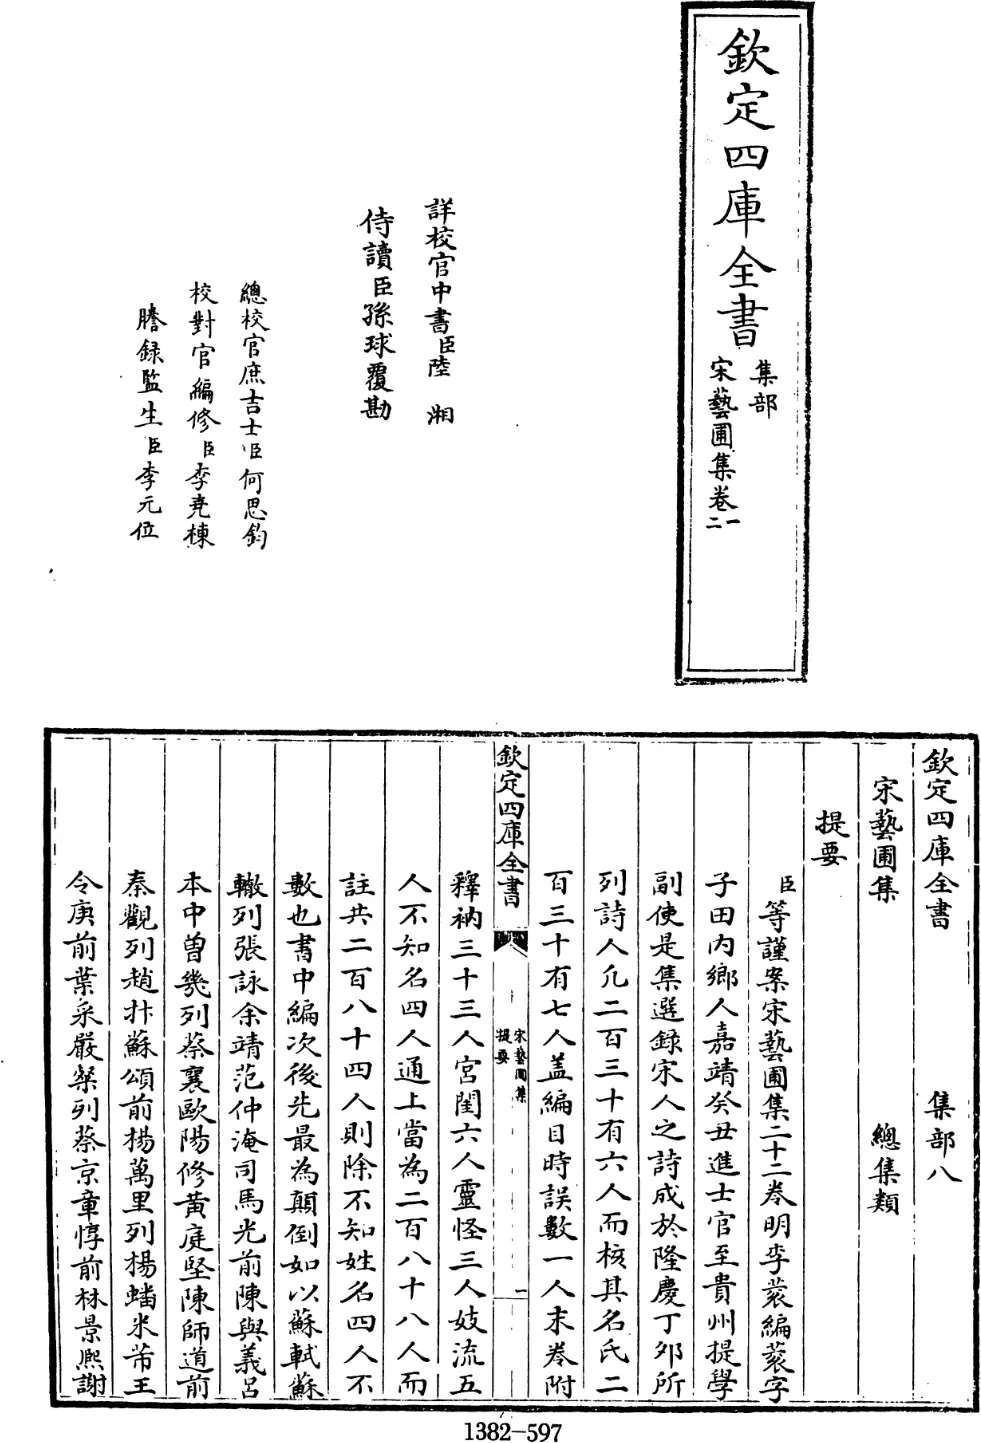 欽定四庫全書
集部
宋藝圃集卷一二
詳校官中書臣陸湘
侍讀臣孫球覆勘
總校官庶吉士臣何思鈞
校對官編修臣李堯棟
謄録監生臣李元位
欽定四庫全書 集部八
宋藝圃集 總集類
提要
臣等謹案宋藝圃集二十二卷明李蓘編蓘字
子田内鄉人嘉靖癸丑進士官至貴州提學
副使是集選録宋人之詩成於隆慶丁卯所
列詩人凢二百三十有六人而核其名氏二
百三十有七人盖編目時誤數一人末卷附
欽定四庫全書
宋藝圃集
提要
一
釋衲三十三人宮閨六人靈怪三人妓流五
人不知名四人通上當為二百八十八人而
註共二百八十四人則除不知姓名四人不
數也書中編次後先最為顛倒如以蘇軾蘇
轍列張詠余靖范仲淹司馬光前陳與義吕
本中曽幾列蔡襄歐陽修黃庭堅陳師道前
秦觀列趙抃蘇頌前楊萬里列楊蟠米芾王
令庚前葉采嚴粲列蔡京章惇前林景熈謝
1382-597